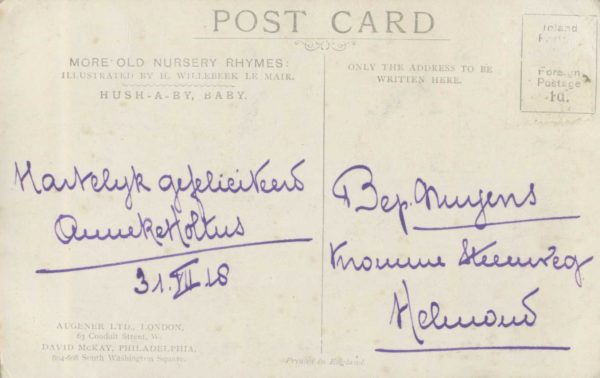 POST CARD
MORE OLD NURSERY RHYMES:
ILLUSTRATED BY H. WILLEBEEK LE MAIR.
HUSH-A-BY, BABY.
ONLY THE ADDRESS TO BE
WRITTEN HERE.
Inland
Foreign
Postage
1d.
Hartelyk gefeliciteerd
Anneke Holtus
31 VII 18
Bep. Nuyens
Kromme Steenweg
Helmond
AUGENER LTD., LONDON,
63 Conduit Street, W.
DAVID McKAY, PHILADELPHIA,
604-608 South Washington Square.
Printed in England.